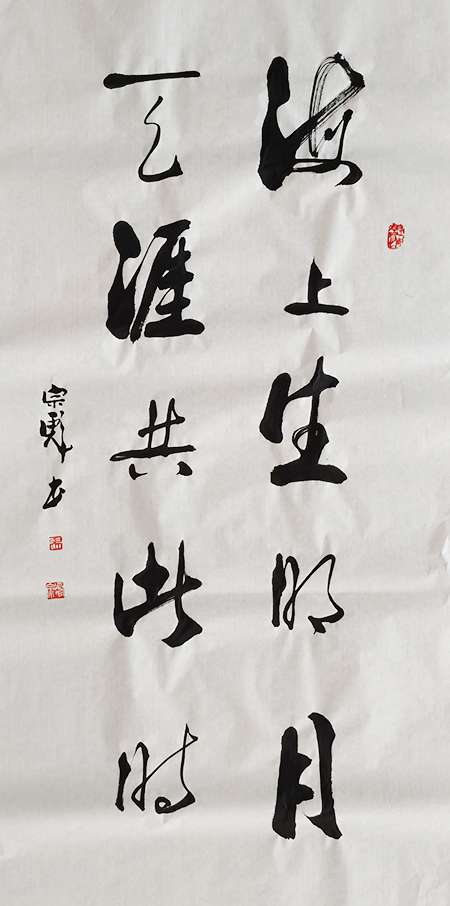 海上生明月
天涯共此时
宗
书